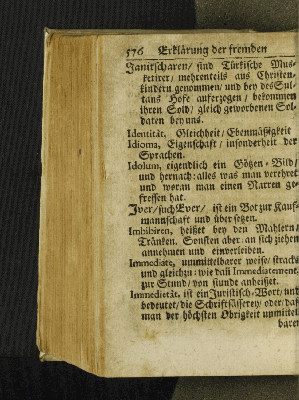 576 Erklärung der fremden
Janitscharen/ sind Türkische Mus-
ketirer/ mehrentheils aus Christen-
kindern genommen/ und bey des Sul-
tans Hofe auferzogen/ bekommen
ihren Sold/ gleich geworbenen Sol-
daten bey uns.
Identität, Gleichheit/ Ebenmäßigkeit
Idioma, Eigenschaft/ insonderheit der
Sprachen.
Idolum, eigendlich ein Götzen-Bild/
und hernach: alles was man verehret
und woran man einen Narren ge-
fressen hat.
Iver/ such Ever/ ist ein Bot zur Kauf-
mannschaft und über segen.
Imhibiren, heißet bey den Mahlern/
Tränken. Sonsten aber: an sich ziehen
annehmen und einverleiben.
Immediate, unmittelbarer weise/ stracks
und gleichzu: wie daß Immediatement,
zur Stund/ von stunde anheißet.
Immedietät, ist ein Juristisch-Wort/ und
bedeutet/ die Schriftsässerey/ oder/ daß
man der höchsten Obrigkeit unmittel-
baren